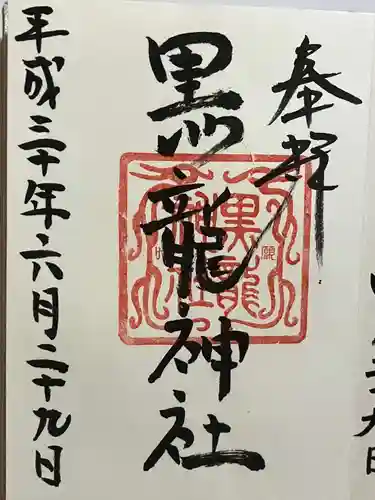 奉拝
黒龍神社
平成三十年六月二十九日
黒龍
神社